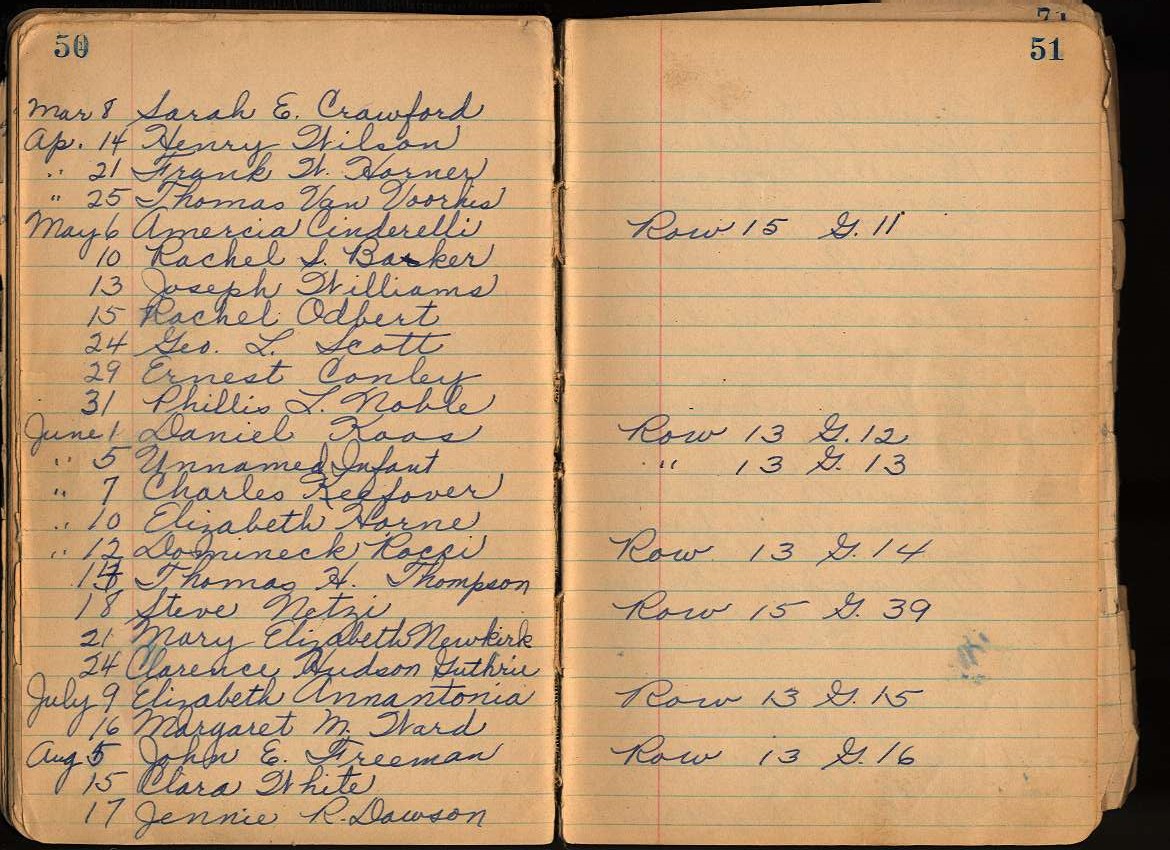 50
Mar 8 Sarah E. Crawford
Ap. 14 Henry Wilson
" 21 Frank W. Horner
" 25 Thomas Van Voorhis
May 6 Amercia Cinderelli Row 15 G. 11
10 Rachel S. Barker
13 Joseph Williams
15 Rachel Odbert
24 Geo. L. Scott
29 Ernest Conley
31 Phillis L. Noble
June 1 Daniel Koos Row 13 G. 12
" 5 Unnamed Infant " 13 G. 13
" 7 Charles Keefover
" 10 Elizabeth Horne
" 12 Domineck Rocci Row 13 G. 14
Thomas H. Thompson
18 Steve Netzi Row 15 G. 39
21 Mary Elizabeth Newkirk
24 Clarence Hudson Guthrie
July 9 Elizabeth Annantonia Row 13 G. 15
16 Margaret M. Ward
Aug 5 John E. Freeman Row 13 G. 16
15 Clara White
17 Jennie R. Dawson
51